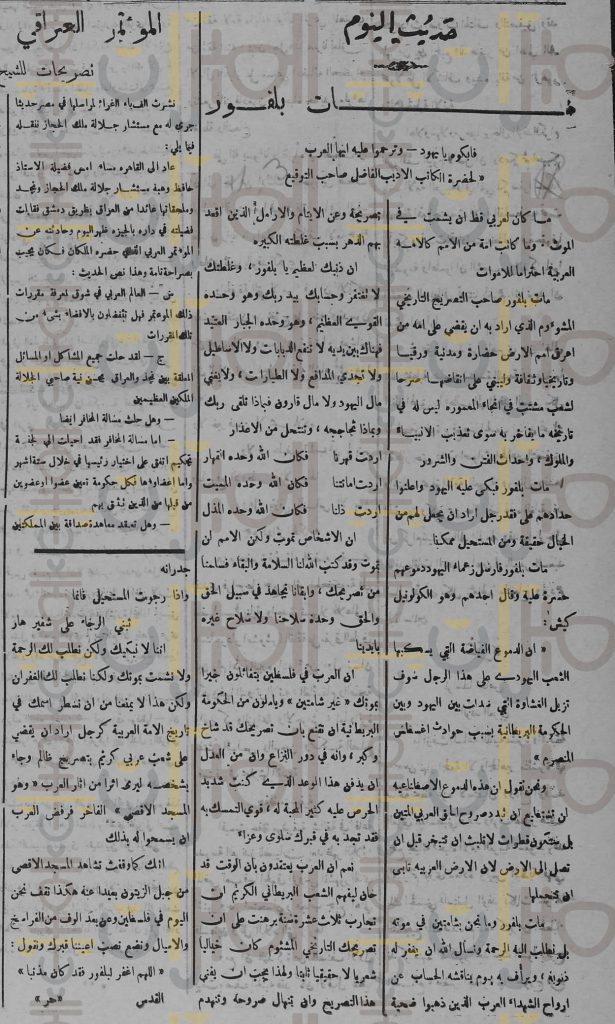 حديث اليوم
مات بلفور
فابكوه يا يهود — وترحموا عليه ايها العرب
« لحضرة الكاتب الاديب الفاضل صاحب التوقيع »
ما كان لعربي قط ان يشمت في
الموت ، وما كانت امة من الامم كالامة
العربية احتراما للاموات
مات بلفور صاحب التصريح التاريخي
المشؤوم الذي اراد به ان يقضي على امة من
اعرق امم الارض حضارة ومدنية ورقيا
وتاريخا وثقافة وليبني على انقاضها صرحا
لشعب مشتت في انحاء المعمورة ليس له في
تاريخه ما يفاخر به سوى تعذيب الانبياء
والملوك ، واحداث الفتن والشرور
مات بلفور فبكى عليه اليهود واعلنوا
حدادهم على فقد رجل اراد ان يجعل لهم من
الخيال حقيقة ومن المستحيل ممكنا
مات بلفور فارسل زعماء اليهود دموعهم
حسرة عليه وقال احدهم وهو الكولونيل
كيش :
« ان الدموع الفياضة التي يسكبها
الشعب اليهودي على هذا الرجل سوف
تزيل الغشاوة التي سدلت بين اليهود وبين
الحكومة البريطانية بسبب حوادث اغسطس
المنصرم »
ونحن نقول ان هذه الدموع الاصطناعيه
لن تستطيع ان تهدم صروح الحق العربي المتين
بل ستكون قطرات لا تلبث ان تتبخر قبل ان
تصل الى الارض لان الارض العربيه تابى
ان تتحملها
مات بلفور وما نحن بشامتين في موته
بل نطلب اليه الرحمة ونسال الله ان يغفر له
ذنوبه ، ويرأف به يوم يناقشه الحساب عن
ارواح الشهداء العرب الذين ذهبوا ضحية
تصريحة وعن الايتام والارامل الذين اقعد
بهم الدهر بسبب غلطته الكبيره
ان ذنبك لعظيم يا بلفور ، وغلطتك
لا تغتفر وحسابك بيد ربك وهو وحده
القوي العظيم ، وهو وحده الجبار العنيد
فهناك بين يديه لا تنفع الدبابات ولا الاساطيل
ولا تجدي المدافع ولا الطيارات ، ولا يغني
مال اليهود ولا مال قارون فبماذا تلقى ربك
وبماذا تحاججه ، وتنتحل من الاعذار
اردت قهرنا فكان الله وحده القهار
اردت اماتتنا فكان الله وحده المميت
اردت ذلنا فكان الله وحده المذل
ان الاشخاص تموت ولكن الامم لن
تموت وقد كتب الله لنا السلامة والبقاء فسلمنا
من تصريحك ، وابقانا نجاهد في سبيل الحق
والحق وحدة سلاحنا ولا سلاح غيره
بايدينا
ان العرب في فلسطين يتفائلون خيرا
بموتك « غير شامتين » وياملون من الحكومة
البريطانية ان تقنع بان تصريحك قد شاخ
وكبر ، وانه في دور النزاع وان من العدل
ان يدفن هذا الوعد الذي كنت شديد
الحرص عليه كثير المحبة له ، قوي التمسك به
فقد تجد به في قبرك سلوى وعزاء
نعم ان العرب يعتقدون بان الوقت قد
حان ليفهم الشعب البريطاني الكريم ان
تجارب ثلاث عشرة سنة برهنت على ان
تصريحك التاريخي المشئوم كان خياليا
شعريا لا حقيقيا ثابتا ولهذا يجب ان يفنى
هذا التصريح وان تنهال صروحة وتنهدم
جدرانه
واذا رجوت المستحيل فانما
تبني الرجاء على شفير هار
اننا لا نبكيك ولكن نطلب لك الرحمة
ولا نشمت بموتك ولكننا نطلب لك الغفران
ولكن هذا لا يمنعنا من ان نسطر اسمك في
تاريخ الامة العربية كرجل اراد ان يقضي
على شعب عربي كريم بتصريح ظالم وجاء
بشخصه ليرى اثرا من اثار العرب « وهو
المسجد الاقصى » الفاخر فرفض العرب
ان يسمحوا له بذلك
انك كما وقفت تشاهد المسجد الاقصى
من جبل الزيتون بعيدا عنه هكذا نقف نحن
اليوم في فلسطين وعن بعد الوف من الفراسخ
والاميال ونضع نصب اعيننا قبرك ونقول :
« اللهم اغفر لبلفور فقد كان مذنبا »
القدس « هر »
المؤتمر العراقي
تصريحات للشيخ
نشرت الضياء الغراء لمراسلها في مصر حديثا
جرى له مع مستشار جلالة ملك الحجاز ننقله
فيما يلي :
عاد الى القاهره مساء امس فضيلة الاستاذ
حافظ وهبة مستشار جلالة ملك الحجاز ونجد
وملحقاتها عائدا من العراق بطريق دمشق فقابلت
فضيلته في داره بالجيزه ظهر اليوم وحادثته عن
المؤتمر العربي الذي حضره الملكان فكان يجيب
بصراحة تامة وهذا نص الحديث :
س — العالم العربي في شوق لمعرفة مقررات
ذلك المؤتمر فهل تتفضلون بالافضاء بشيء من
تلك المقررات
ج — لقد حلت جميع المشاكل او المسائل
المعلقة بين نجد والعراق بحسن نية صاحبي الجلالة
الملكين العظيمين
— وهل حلت مسالة المخافر ايضا
— اما مسالة المخافر فقد احيلت الى لجنة
تحكيم اتفق على اختيار رئيسها في خلال ستة اشهر
واما اعضاؤها فكل حكومة تعين عضوا او عضوين
من قبلها من الذين تثق بهم
— وهل تعقد معاهدة صداقة بين المملكتين